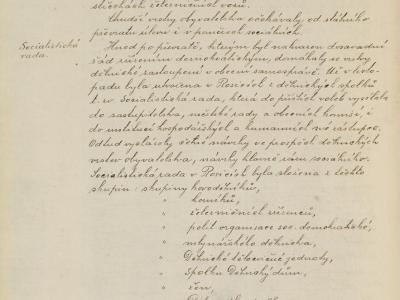 stížnostech železničních vozů.
Chudší vrstvy obyvatelstva očekávaly od státního
převratu úlevu i v poměrech sociálních.
Socialistická
rada.
Hned po převratě, kterým byl nahrazen dosavadní
řád řízením demokratickým, domáhaly se vrstvy
dělnické zastoupení v obecní samosprávě. Už v listo-
padu byla utvořena v Rosicích z dělnických spolků
t. zv. Socialistická rada, která do příštích voleb vysílala
do zastupitelstva, městské rady a obecních komisí, i
do institucí hospodářských a humanních své zástupce.
Odtud vycházely účelné návrhy ve prospěch dělnických
vrstev obyvatelstva, návrhy hlavně rázu sociálního.
Socialistická rada v Rosicích byla složena z těchto
skupin: skupiny kovodělníků,
" horníků,
" železničních zřízenců,
" polit. organisace soc. demokratické,
" mlynářského dělnictva,
" Dělnické tělocvičné jednoty,
" Spolku Dělnický dům,
" žen,